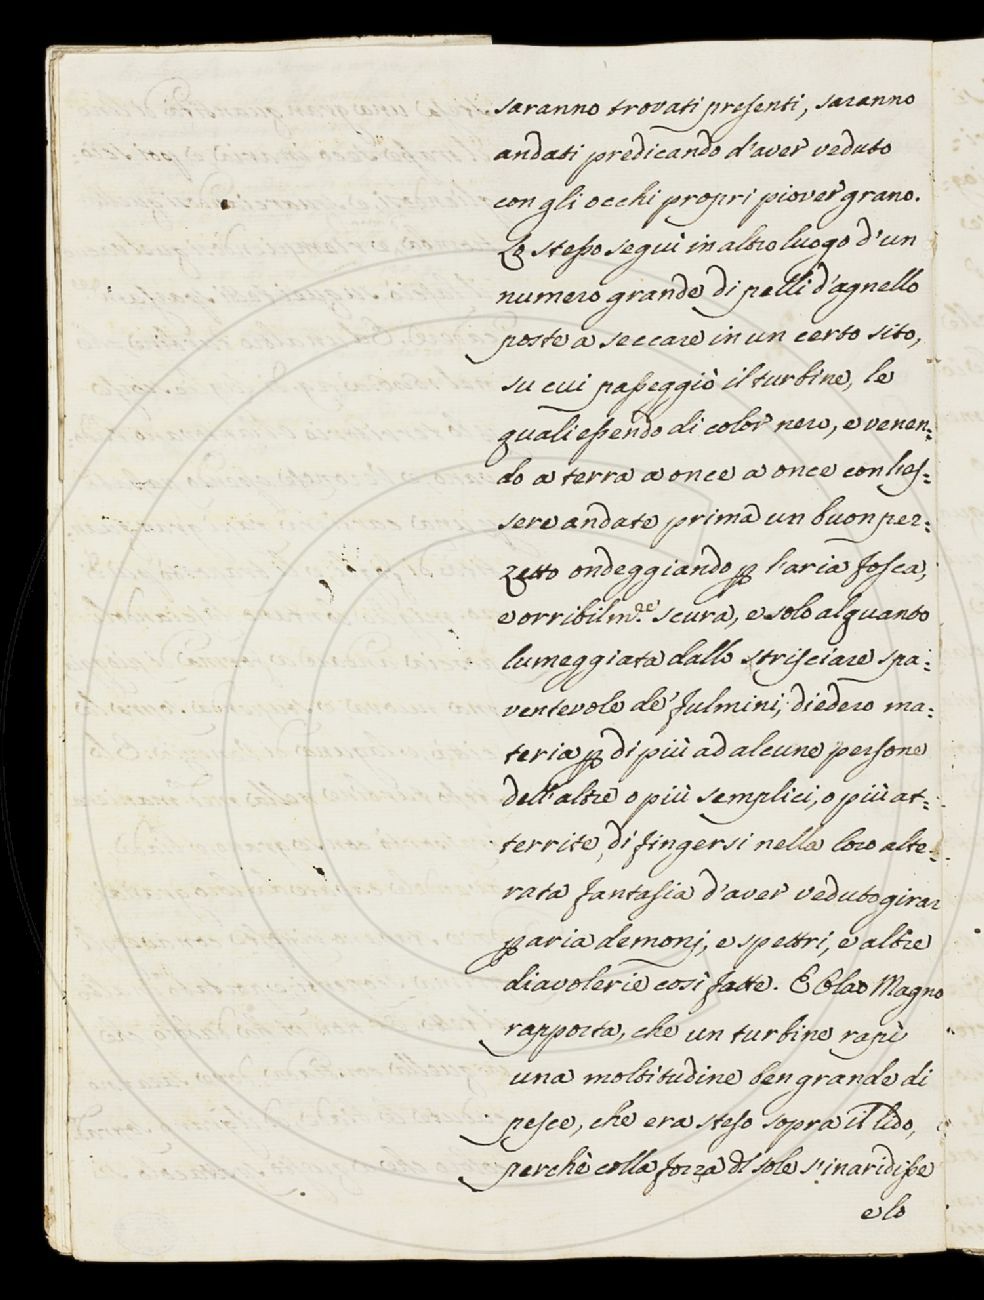 saranno trovati presenti, saranno
andati predicando d'aver veduto
con gli occhi propri piover grano.
Lo stesso seguì in altro luogo d'un
numero grande di pelli d'agnello
poste a seccare in un certo sito,
su cui passeggiò il turbine, le
quali essendo di color nero, e venen=
do a terra a once a once con hes=
sere andate prima un buon pez=
zetto ondeggiando p l'aria fosca,
e orribilm.te scura, e solo alquanto
lumeggiata dallo strisciare spa=
ventevole de' fulmini, diedero ma=
teria p di più ad alcune persone
dell'altre o più semplici, o più at=
territe, di fingersi nella loro alte=
rata fantasia d'aver veduto girar
p aria demonj, e spettri, e altre
diavolerie così fatte. E Olao Magno
rapporta, che un turbine rapì
una moltitudine ben grande di
pesce, che era steso sopra il lido,
perchè colla forza di sole s'inaridisse
e lo